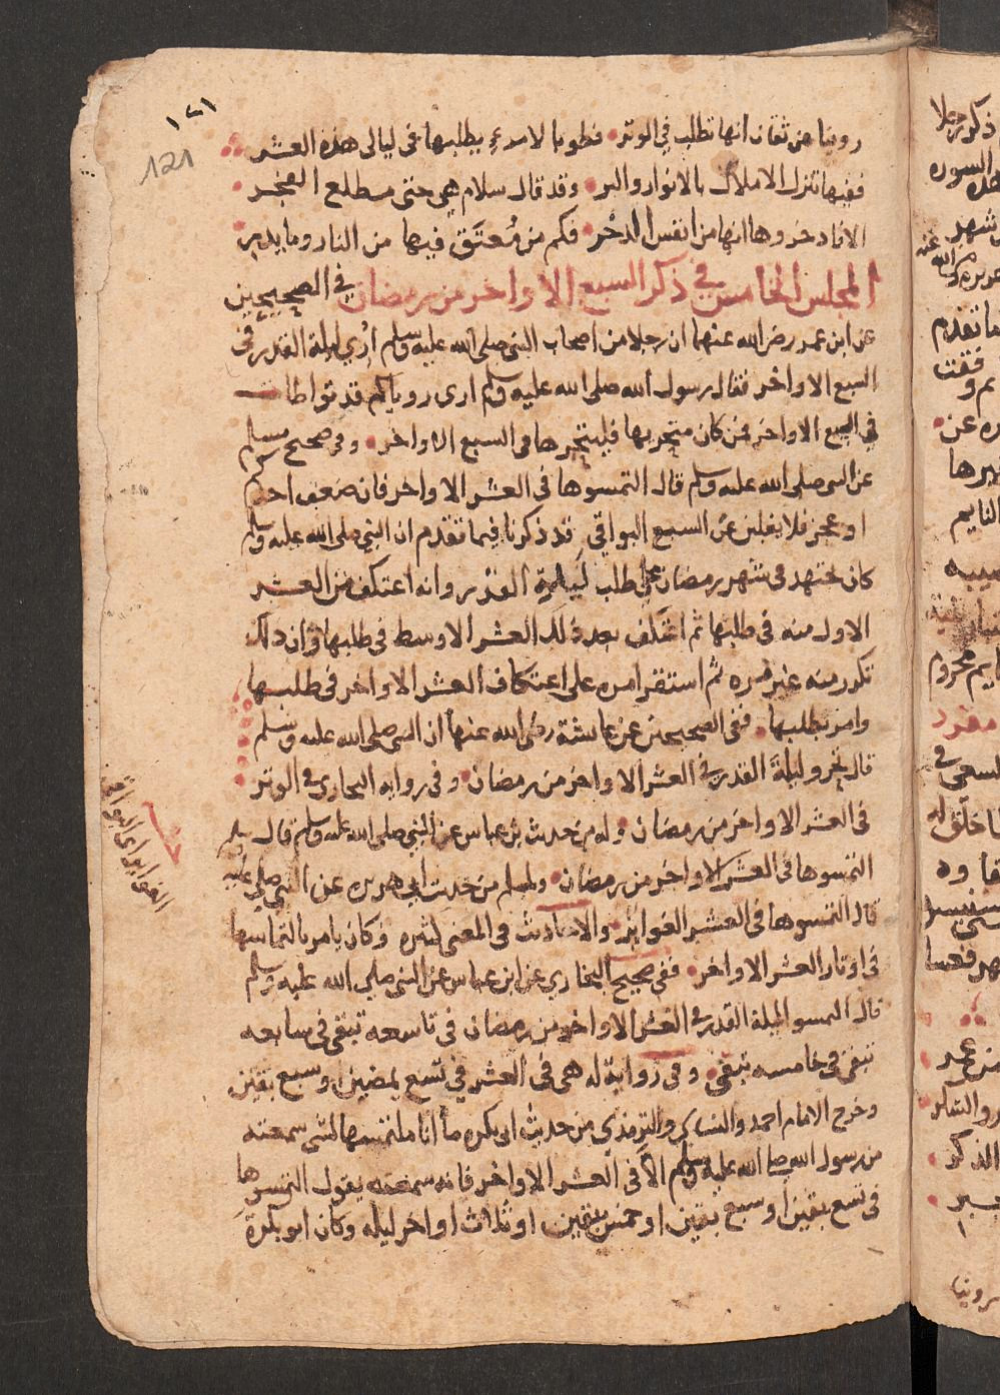 ١٢١
121
روينا عن ثقات انها تطلب في الوتر فطوبا لامرءٍ يطلبها في ليالي هذه العشر
ففيها تنزل الاملاك بالانوار والبر وقد قال سلام هي حتى مطلع الفجر
الا فادخروها انها من انفس الدخر فكم من مُعتَق فيها من النار وما يدري
المجلس الخامس في ذكر السبع الاواخر من رمضان في الصحيحين
عن ابن عمر رضي الله عنهما ان رجلا من اصحاب النبي صلى الله عليه وسلم أُري ليلة القدر في
السبع الاواخر فقال رسول الله صلى الله عليه وسلم ارى روياكم قد تواطات
في السبع الاواخر فمن كان متحريها فليتحرها في السبع الاواخر وفي صحيح مسلم
عن النبي صلى الله عليه وسلم قال التمسوها في العشر الاواخر فان ضعف احدكم
او عجز فلا يغلبن عن السبع البواقي قد ذكرنا فيما تقدم ان النبي صلى الله عليه وسلم
كان يجتهد في شهر رمضان على طلب ليلة القدر وانه اعتكف من العشر
الاول منه في طلبها ثم اعتكف بعد ذلك العشر الاوسط في طلبها وان ذلك
تكرر منه غير مره ثم استقر امره على اعتكاف العشر الاواخر في طلبها
وامر بطلبها ففي الصحيحين عن عايشة رضي الله عنها ان النبي صلى الله عليه وسلم
قال تحروا ليلة القدر في العشر الاواخر من رمضان وفي روايه البخاري في الوتر
في العشر الاواخر من رمضان وله من حديث بن عباس عن النبي صلى الله عليه وسلم قال
التمسوها في العشر الاواخر من رمضان ولمسلم من حديث ابي هريره عن النبي صلى الله عليه وسلم
قال التمسوها في العشر الغوابر والاحاديث في المعنى كثيره وكان يامر بالتماسها
في اوتار العشر الاواخر ففي صحيح البخاري عن ابن عباس عن النبي صلى الله عليه وسلم
قال التمسوا ليلة القدر في العشر الاواخر من رمضان في تاسعه تبقى في سابعه
تبقى في خامسه تبقى وفي رواية له هي في العشر في تسع يمضين او سبع بقين
وخرج الامام احمد والنساي والترمذي من حديث ابي بكره ما أنا ملتمسها لشي سمعته
من رسول الله صلى الله عليه وسلم الا في العشر الاواخر فانه سمعته يقول التمسوها
في تسع بقين او سبع بقين او خمس بقين او ثلاث او اخر ليله وكان ابو بكرة